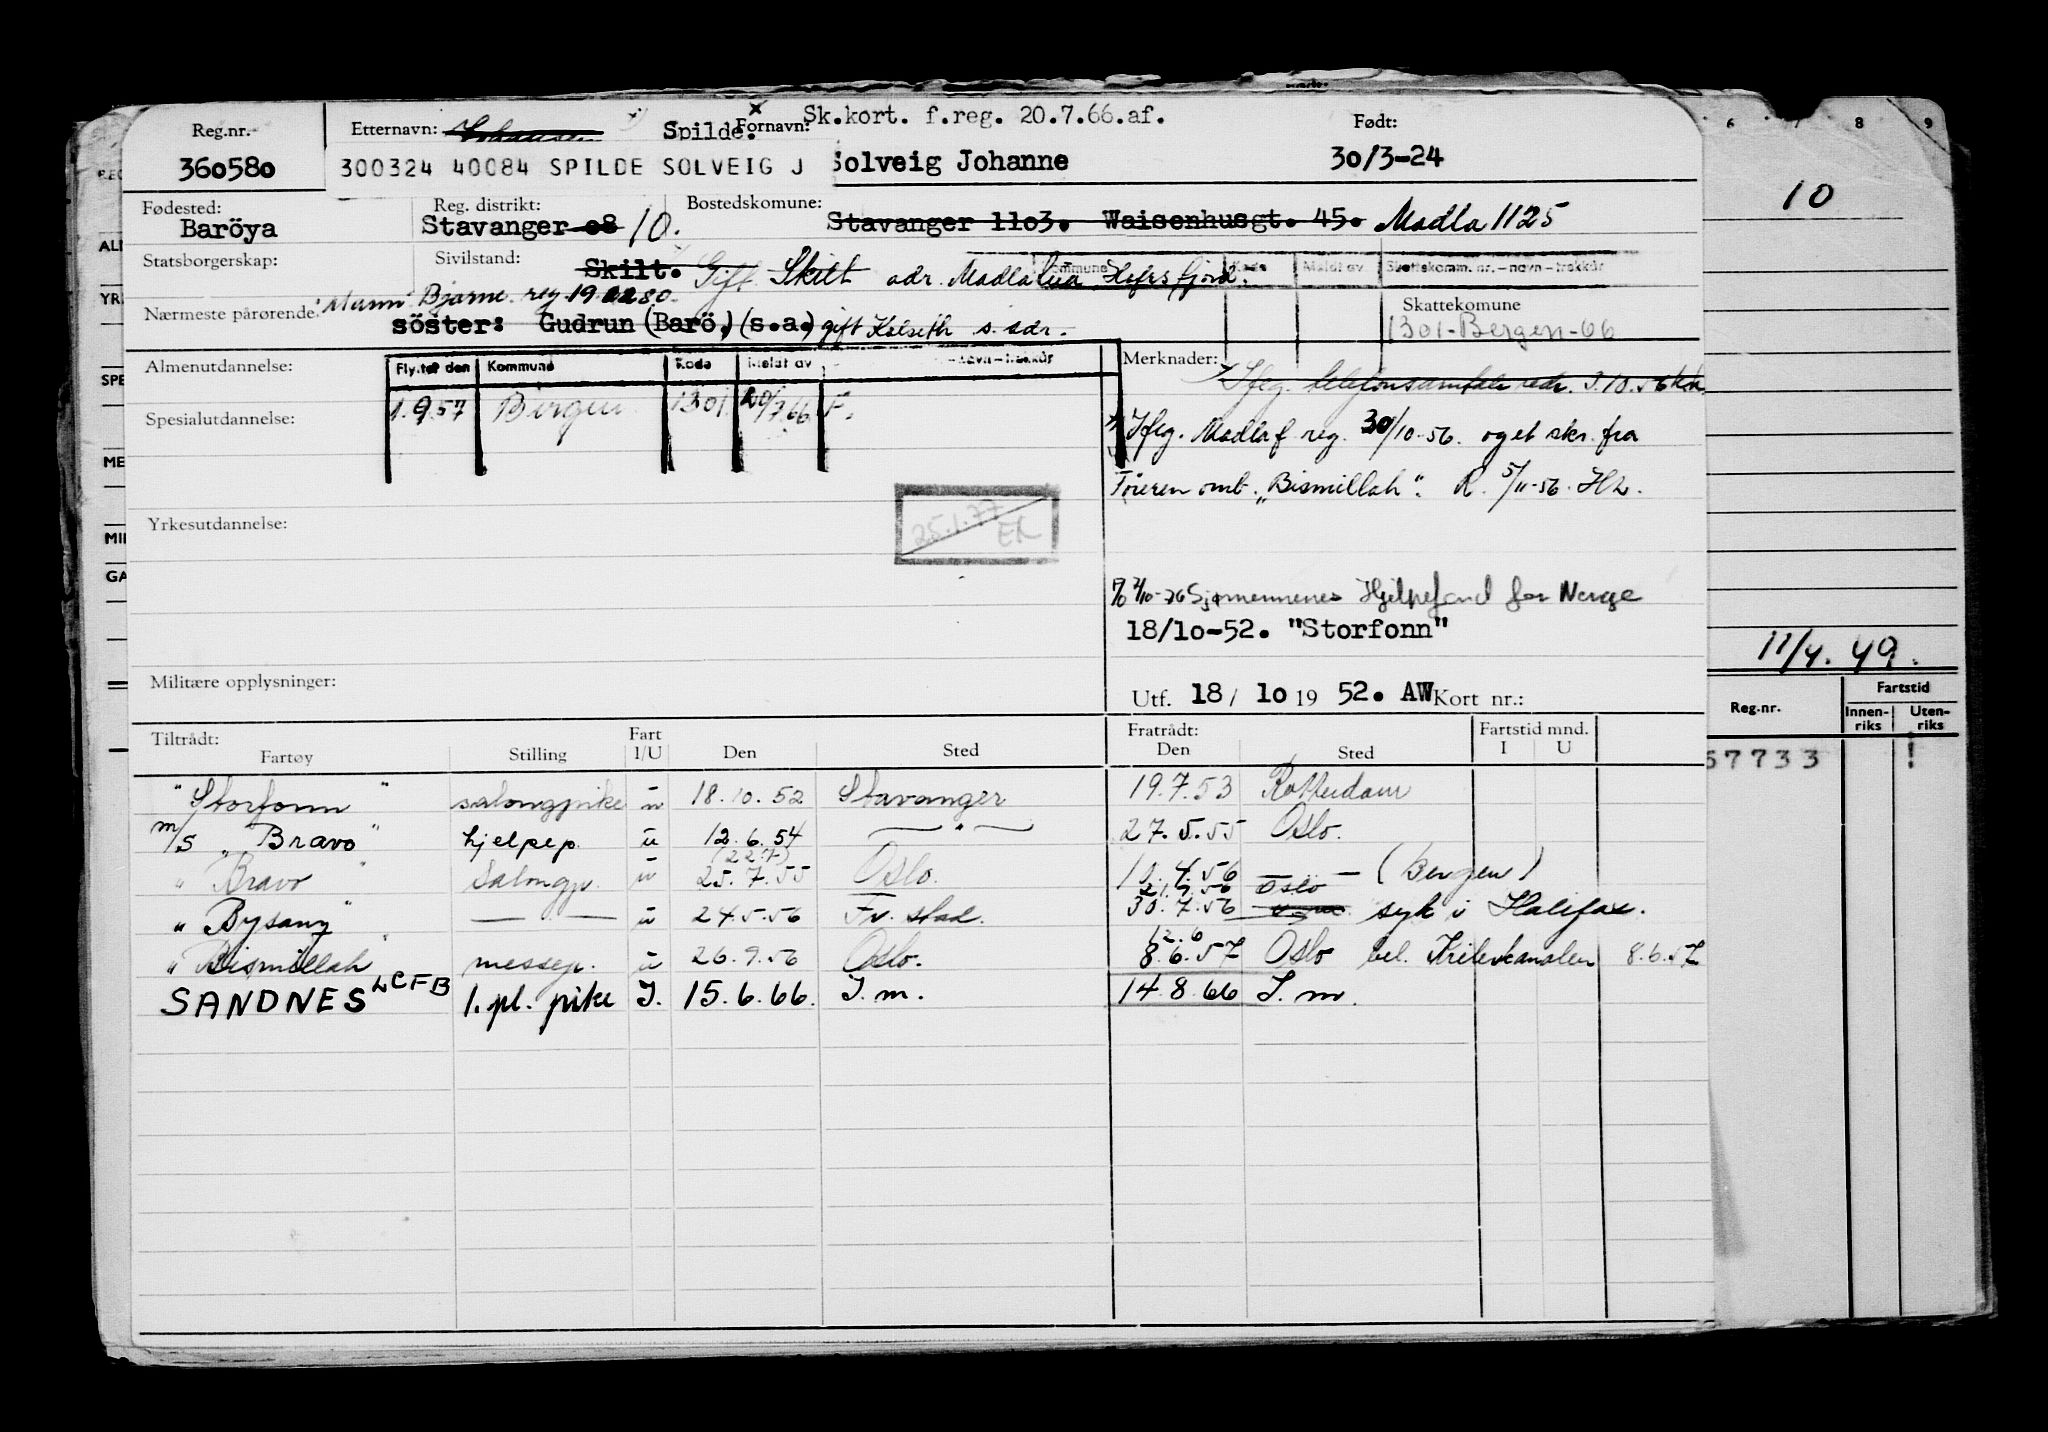 Reg.nr. Etternavn: Spilde. Fornavn: Sk.kort. f.reg. 20.7.66.af. Født:
360580 300324 40084 SPILDE SOLVEIG J Solveig Johanne 30/3-24
Fødested: Reg. distrikt: Bostedskomune:
Baröya Stavanger 08 10. Stavanger 1103. Waisenhusgt. 45. Madla 1125
Statsborgerskap: Sivilstand: Skilt. Gift Skilt adr. Madlalia Hafrsfjord.
Kode Meldt av Skattekomm. nr. – navn – trekkår
Mann: Bjarne reg. 19
Nærmeste pårørende: söster: Gudrun (Barö,) (s.a.) gift Kalseth s. adr.
Skattekomune
1301-Bergen-66
Almenutdannelse:
Flyttet den Kommune Kode Meldt av – navn – trekkår
1.9.57 Bergen 1301 20/7 66 F.
Spesialutdannelse:
Yrkesutdannelse:
25.1.77
EK
Militære opplysninger:
Merknader:
IfLg. telefonsamtale 3.10.56
Iflg. Madla f. reg. 30/10-56. og et skr. fra
Føreren omb. "Bismillah". R. 5/11-56. H2.
2/10-76 Sjømennenes Hjelpefond for Norge
18/10-52. "Storfonn"
Utf. 18/ 10 19 52. AW Kort nr.:
Tiltrådt: Fart Fratrådt: Fartstid mnd.
Fartøy Stilling I/U Den Sted Den Sted I U
"Storfonn" salongpike u 18.10.52 Stavanger 19.7.53 Rotterdam
m/s "Bravo" hjelpep. u 12.6.54 — " — 27.5.55 Oslo.
(22.7)
" Bravo " Salongp. u 25.7.55 Oslo. 10.4.56 — (Bergen)
21.7.56 Oslo
" Bysanz " — — u 24.5.56 Fr.stad. 30.7.56 syk i Halifax.
12.6
" Bismillah " messep. u 26.9.56 Oslo. 8.6.57 Oslo bel. 8.6.57
SANDNES LCFB 1. pl. pike I. 15.6.66. I.m. 14.8.66 I.m.
6 7 8 9
10
11/4. 49.
Reg.nr. Fartstid
Innen-riks Uten-riks
67733
REG
ALM
YRK
SPE
MER
MIL
GA